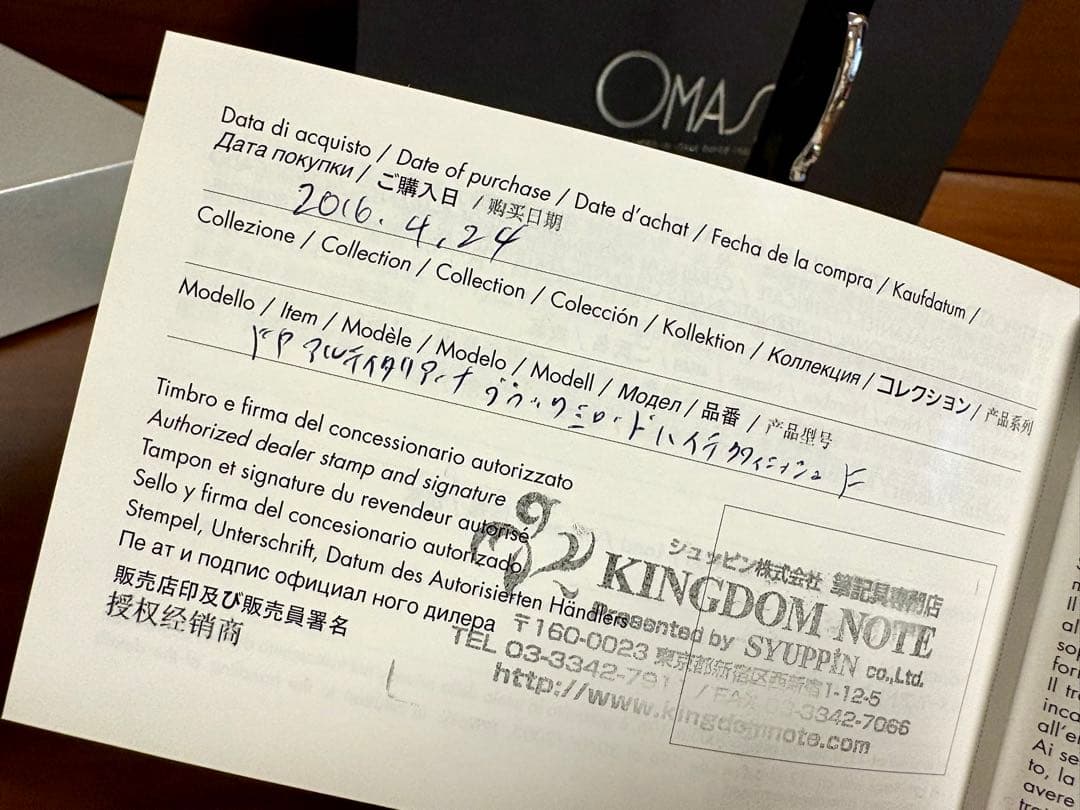 OMAS
Data di acquisto / Date of purchase / Date d'achat / Fecha de la compra / Kaufdatum /
Дата покупки / ご購入日 / 购买日期
2016. 4. 24
Collezione / Collection / Collection / Colección / Kollektion / Коллекция / コレクション / 产品系列
Modello / Item / Modèle / Modelo / Modell / Модел / 品番 / 产品型号
ドヤ アルテイタリアーナ ブラックミロードハイテク
Timbro e firma del concessionario autorizzato
Authorized dealer stamp and signature
Tampon et signature du revendeur autorisé
Sello y firma del concesionario autorizado
Stempel, Unterschrift, Datum des Autorisierten Händlers
Пе ат и подпис официал ного дилера
販売店印及び販売員署名
授权经销商
シュッピン株式会社 筆記具専門店
KINGDOM NOTE
Presented by SYUPPIN co.,Ltd.
〒160-0023 東京都新宿区西新宿1-12-5
TEL 03-3342-791 / FAX 03-3342-7066
http://www.kingdomnote.com